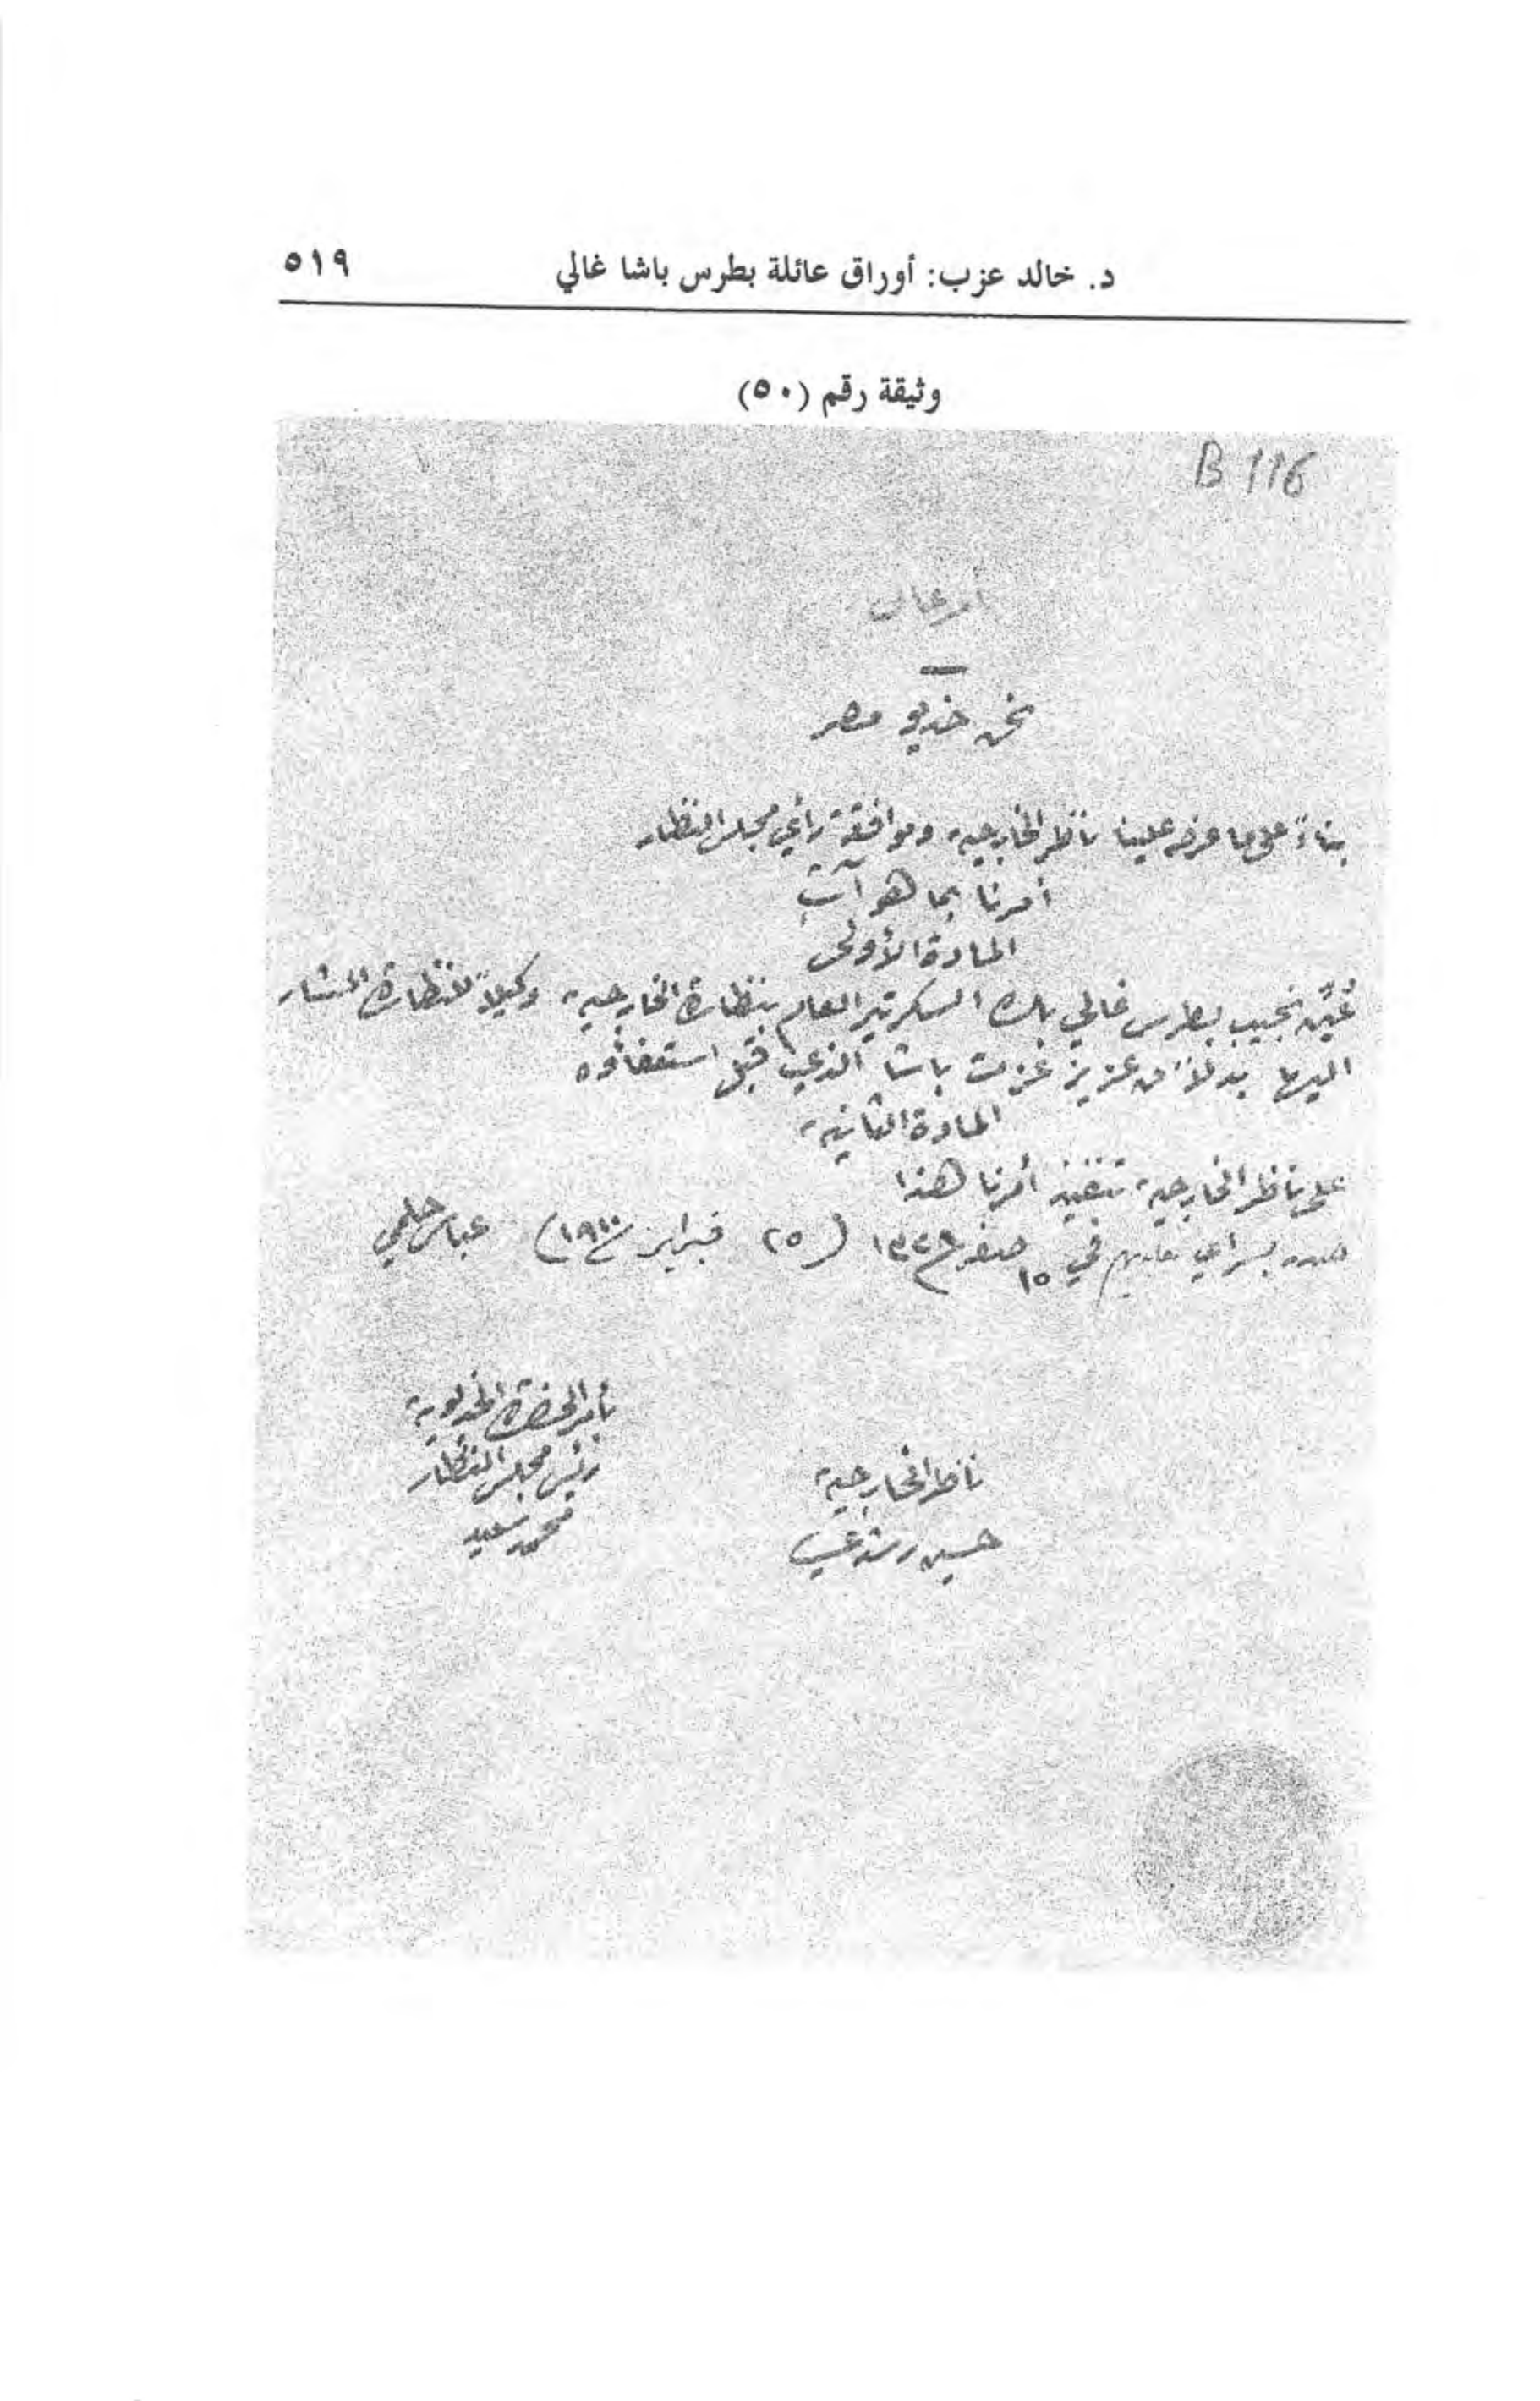 د. خالد عزب: أوراق عائلة بطرس باشا غالي ٥١٩
وثيقة رقم (٥٠)
B 116
أمر عال
نحن خديو مصر
بناءً على ما عرضه علينا ناظر الخارجية وموافقة رأي مجلس النظار
أمرنا بما هو آت
المادة الأولى
عُيِّن نجيب بطرس غالي بك السكرتير العام بنظارة الخارجية وكيلاً للنظارة المشار
اليها بدلاً من عزيز عزت باشا الذي قُبل استعفاؤه
المادة الثانية
على ناظر الخارجية تنفيذ أمرنا هذا
صدر بسراي في ١٥ صفر ١٣٢٨ (٢٥ فبراير ١٩١٠) عباس حلمي
بأمر الحضرة الخديوية
رئيس مجلس النظار
محمد سعيد
ناظر الخارجية
حسين رشدي